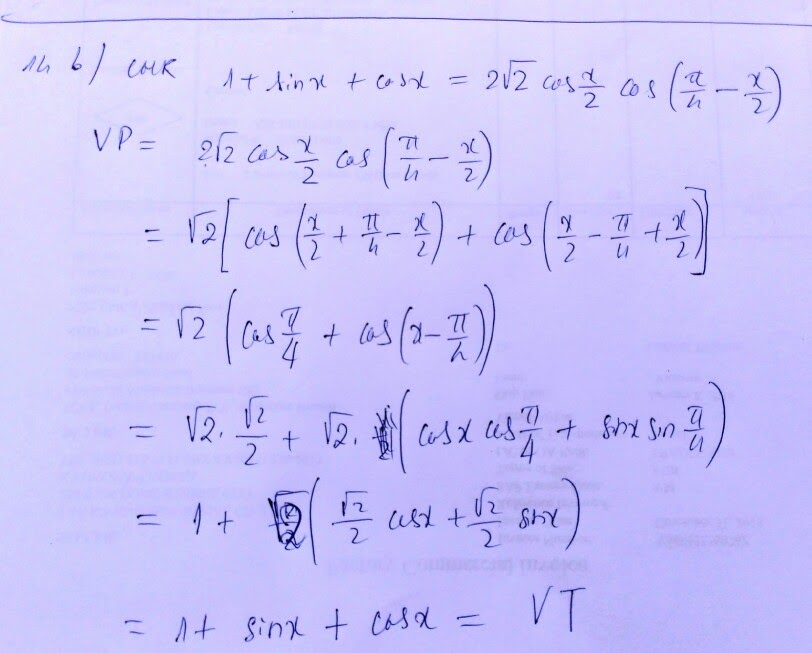 14 b) CMR 1 + sinx + cosx = 2√2 cos x/2 cos (π/4 − x/2)
VP = 2√2 cos x/2 cos (π/4 − x/2)
= √2 [cos (x/2 + π/4 − x/2) + cos (x/2 − π/4 + x/2)]
= √2 (cos π/4 + cos (x − π/4))
= √2 . √2/2 + √2 . (cosx cos π/4 + sinx sin π/4)
= 1 + √2 (√2/2 cosx + √2/2 sinx)
= 1 + sinx + cosx = VT